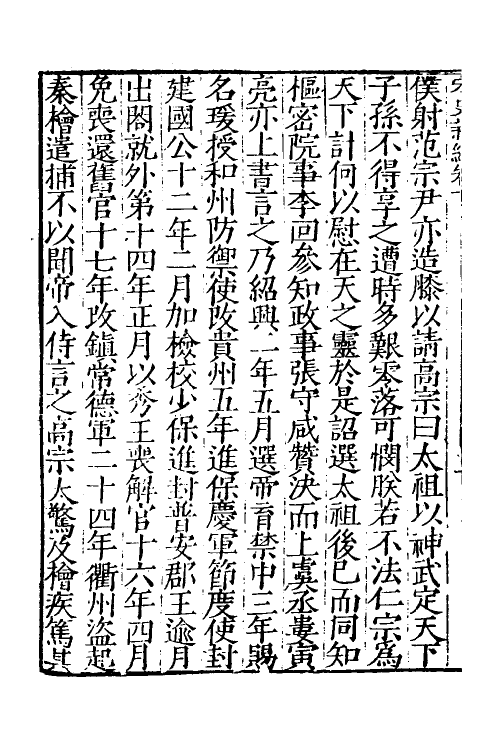 僕射范宗尹亦造膝以請高宗曰太祖以神武定天下
子孫不得享之遭時多艱零落可憫朕若不法仁宗爲
天下計何以慰在天之靈於是詔選太祖後已而同知
樞密院事李回參知政事張守咸贊決而上虞丞婁寅
亮亦上書言之乃紹興二年五月選帝育禁中三年賜
名瑗授和州防禦使改貴州五年進保慶軍節度使封
建國公十二年二月加檢校少保進封普安郡王逾月
出閤就外第十四年正月以秀王喪解官十六年四月
免喪還舊官十七年改鎮常德軍二十四年衢州盜起
秦檜遣捕不以聞帝入侍言之高宗大驚及檜疾篤其